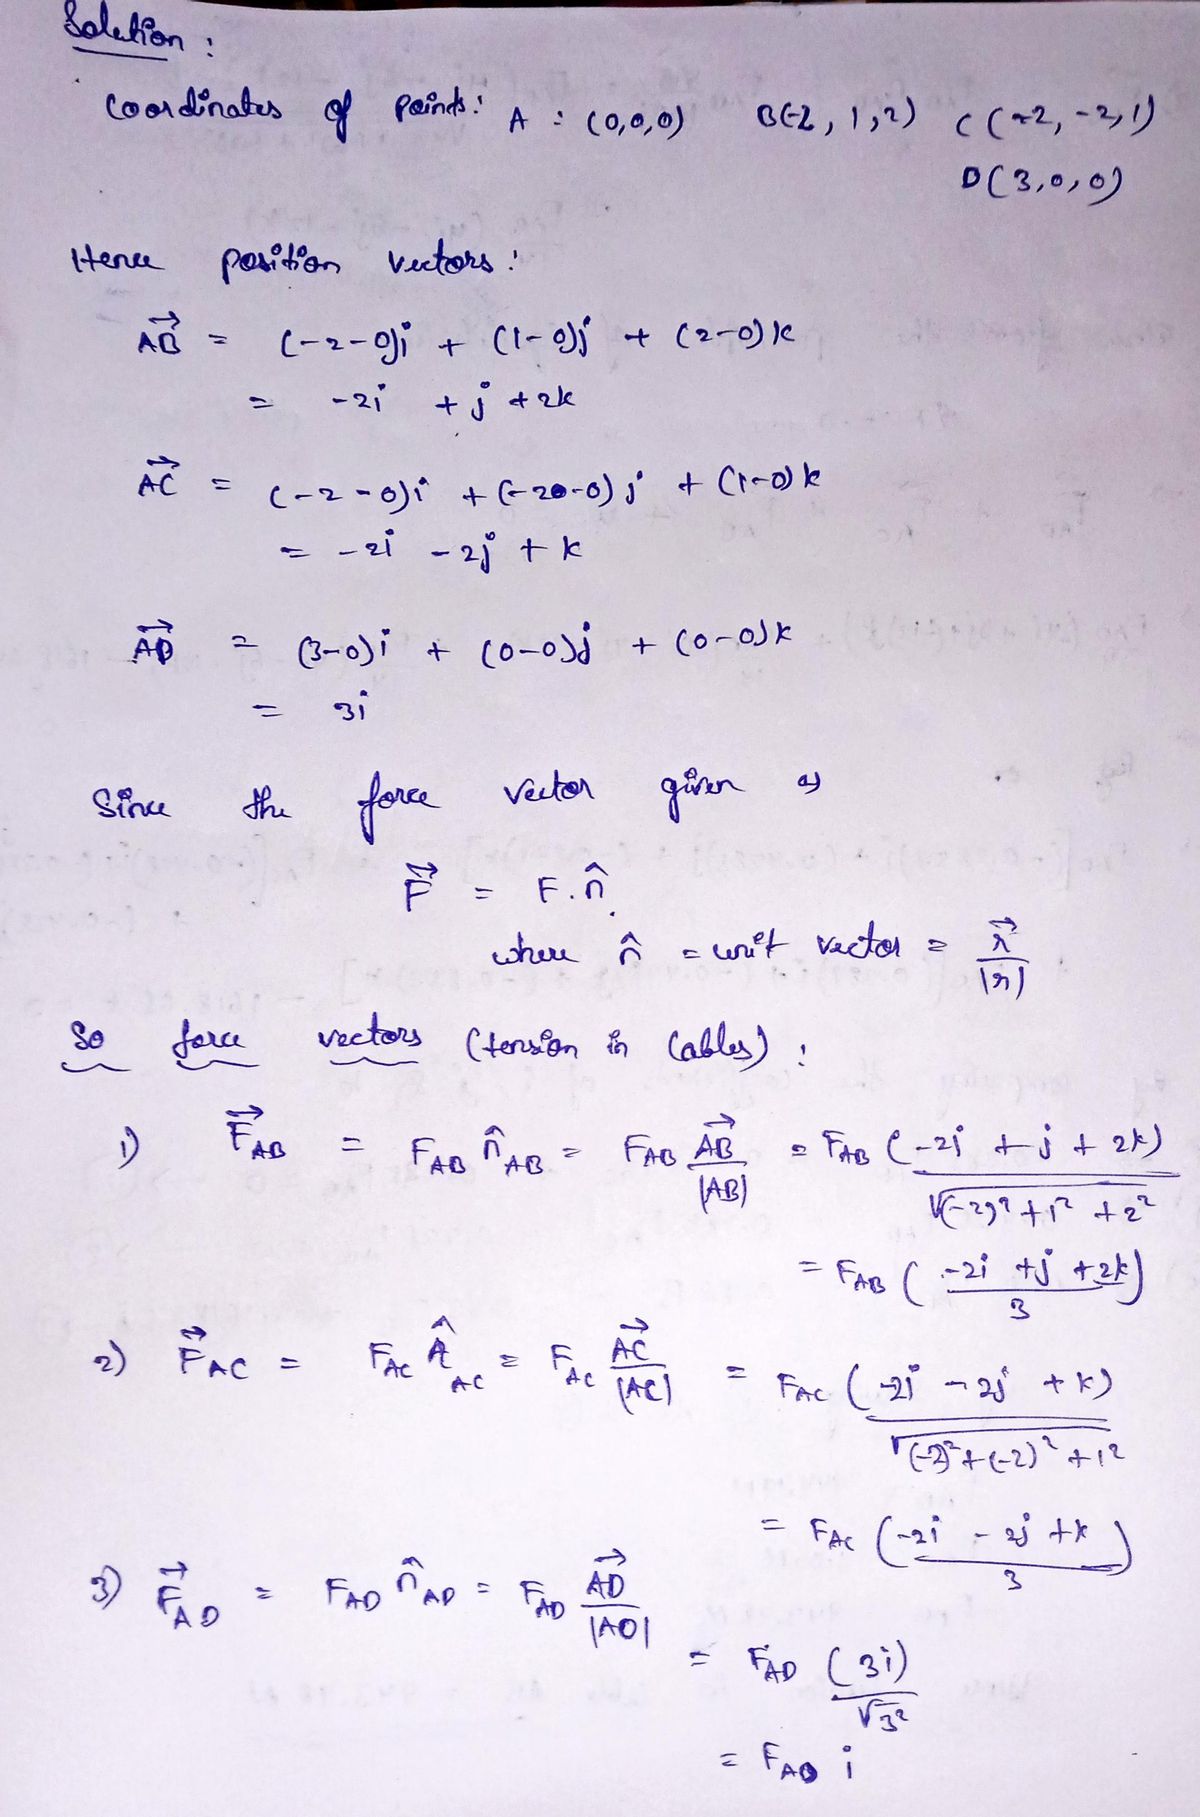 Solution :
Coordinates of points: A : (0,0,0) B(-2, 1, 2) C (-2, -2, 1)
D(3, 0, 0)
Hence position vectors :
AB⃗ = (-2-0)i + (1-0)j + (2-0)k
= -2i + j + 2k
AC⃗ = (-2-0)i + (-20-0)j + (1-0)k
= -2i - 2j + k
AD⃗ = (3-0)i + (0-0)j + (0-0)k
= 3i
Since the force vector given as
F⃗ = F. n̂
where n̂ = unit vector = r⃗ / |r|
So force vectors (tension in Cables) :
1) F⃗AB = FAB n̂AB = FAB AB⃗ / |AB| = FAB (-2i + j + 2k) / √(-2)² + 1² + 2²
= FAB (-2i + j + 2k / 3)
2) F⃗AC = FAC n̂AC = FAC AC⃗ / |AC| = FAC (-2i - 2j + k) / √(-2)² + (-2)² + 1²
= FAC (-2i - 2j + k / 3)
3) F⃗AD = FAD n̂AD = FAD AD⃗ / |AD|
= FAD (3i) / √3²
= FAD i